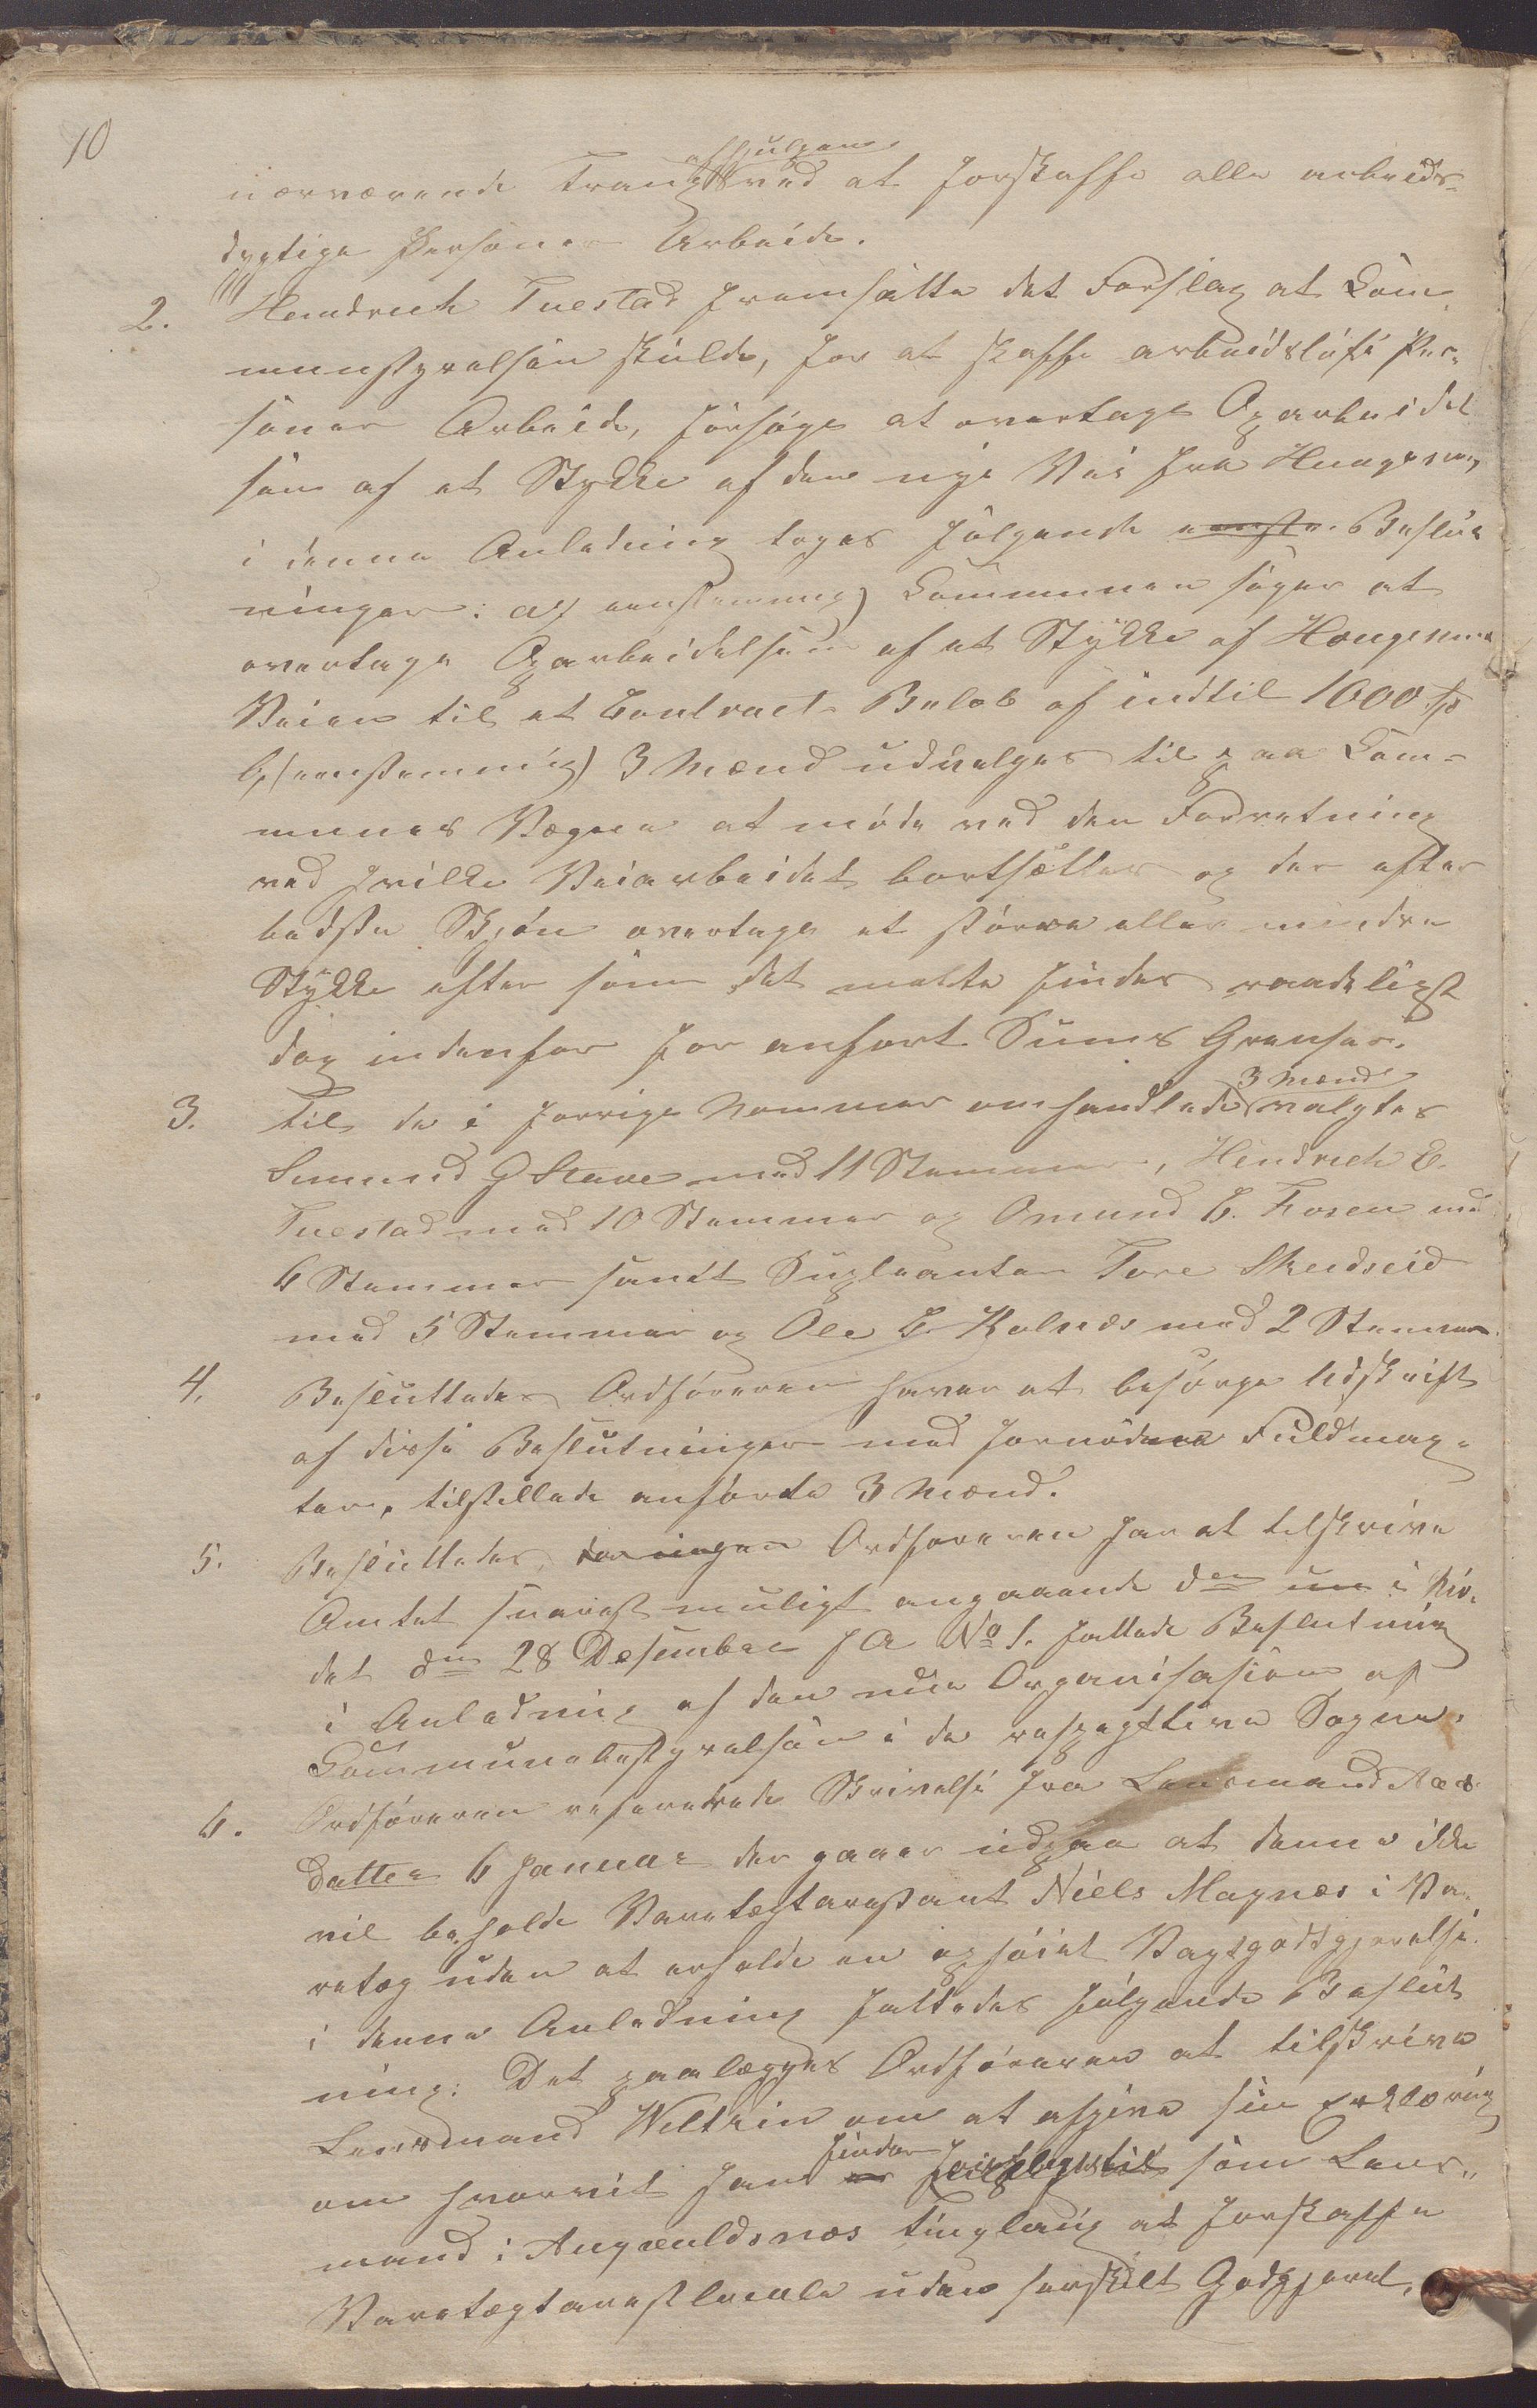 10
afhjulpen
nærværende Trang ved at forskaffe alle arbeids-
dygtige Personer Arbeide.
2. Hendrich Tuestad fremsatte det Forslag at Com
munestyrelsen skulde, for at skaffe arbeidsløse Per-
soner Arbeide, forsøge at overtage Oparbeidel
sen af et Stykke af den nye Vei fra Haugesund
i denne Anledning toges følgende Beslut
ninger: a) eenstemmig) Communen søger at
overtage Oparbeidelsen af et Stykke af Haugesund
Veien til et Contract Beløb af indtil 1000 Spd
b, (eenstemmig) 3 Mænd udvælges til paa Com-
munes Vegne at møde ved den Forretning
ved hvilke Veiarbeidet bortsættes og der efter
bedste Skjøn overtage et større eller mindre
Stykke efter som det maatte findes raadeligst
dog indenfor før anført Sums Grenser.
3 Mænd
3. Til de i forrige Nommer omhandlede valgtes
Gunund G Stave med 11 Stemmer, Hendrich E.
Tuestad med 10 Stemmer og Omund E. Fosen med
6 Stemmer samt Supleanter Tore Skeidseid
med 5 Stemmer og Ole T. Kolnes med 2 Stemmer.
4. Besluttedes Ordføreren haver at besørge Udskrift
af disse Beslutninger med fornødne Fuldmag-
ter, tilstillede anførte 3 Mænd.
5. Besluttedes, Ordføreren har at tilskrive
Amtet snarest muligt angaaende den i Mø-
det den 28 Desember f A No 1. fattede Beslutning
i Anledning af den nue Organisasion af
Communebestyrelsen i de respegttive Sogne.
6. Ordføreren refererede Skrivelse fra Lensmand Aae
datter 6 Januar der gaaer udpaa at denne ikke
vil beholde Varetægtarestant Niels Magnes i Va-
retæg uden at erholde en ophøiet Vagtgodtgjørelse.
i denne Anledning fattedes følgende Beslut
ning: Det paalegges Ordføreren at tilskrive
Lensmand Weltzin om at afgive sin Erklæring
finder
om hvorvit han som Lens-
mand i Augvaldsnes Tinglaug at forskaffe
Varetægtarestlocale uden serskilt Godgjørel,